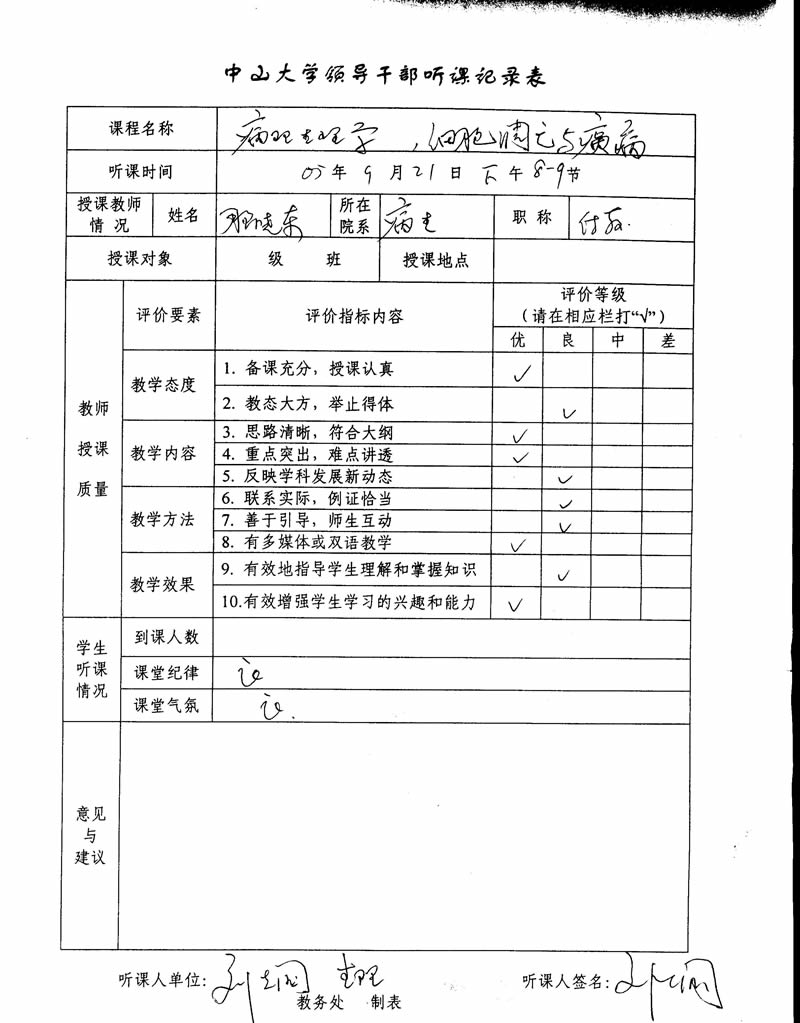 中山大学领导干部听课记录表
课程名称 病理生理学，细胞凋亡与疾病
听课时间 05年9月21日下午8-9节
授课教师情况 姓名 所在院系 病生 职称 付教.
授课对象 级 班 授课地点
教师授课质量 评价要素 评价指标内容 评价等级
（请在相应栏打“√”）
优 良 中 差
教学态度 1. 备课充分，授课认真 ✓
2. 教态大方，举止得体 ✓
教学内容 3. 思路清晰，符合大纲 ✓
4. 重点突出，难点讲透 ✓
5. 反映学科发展新动态 ✓
教学方法 6. 联系实际，例证恰当 ✓
7. 善于引导，师生互动 ✓
8. 有多媒体或双语教学 ✓
教学效果 9. 有效地指导学生理解和掌握知识 ✓
10.有效增强学生学习的兴趣和能力 ✓
学生听课情况 到课人数
课堂纪律
课堂气氛
意见
与
建议
听课人单位： 生理 听课人签名：
教务处 制表